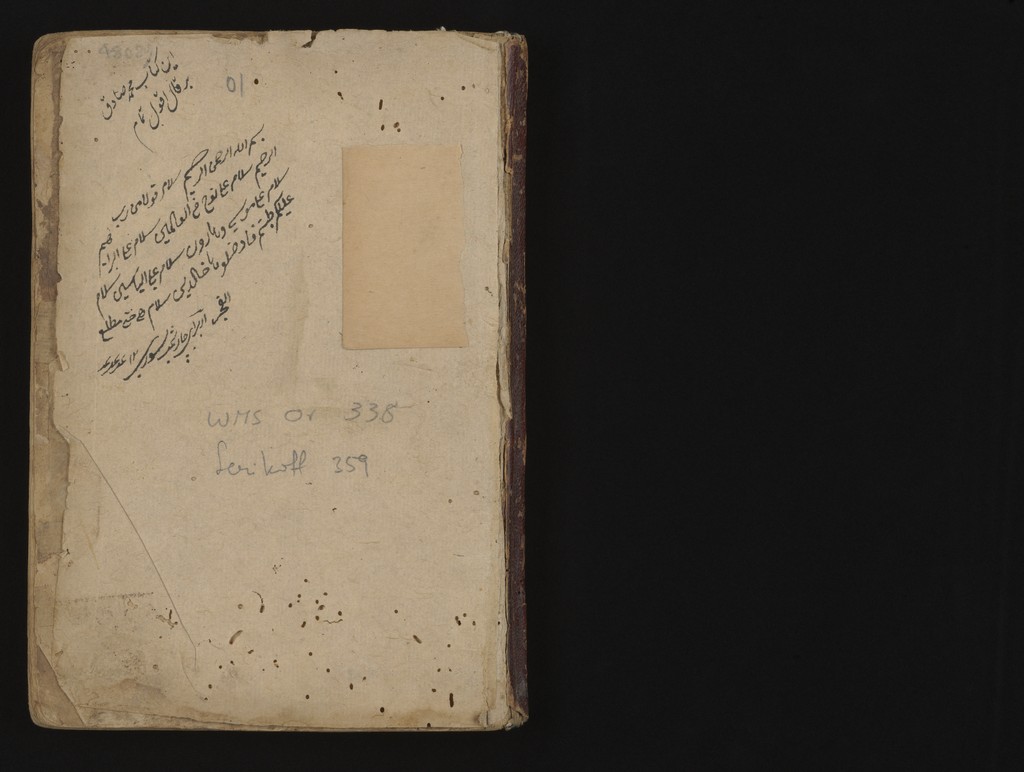 49081
این کتاب محمد صادق
بر قال اقول تمام
01
بسم الله الرحمن الرحیم سلام قولا من رب
الرحیم سلام علی نوح فی العالمین سلام علی ابراهیم
سلام علی موسی و هارون سلام علی الیاسین سلام
علیکم طبتم فادخلوها خالدین سلام هی حتی مطلع
الفجر
WMS Or 335
Serikoff 359